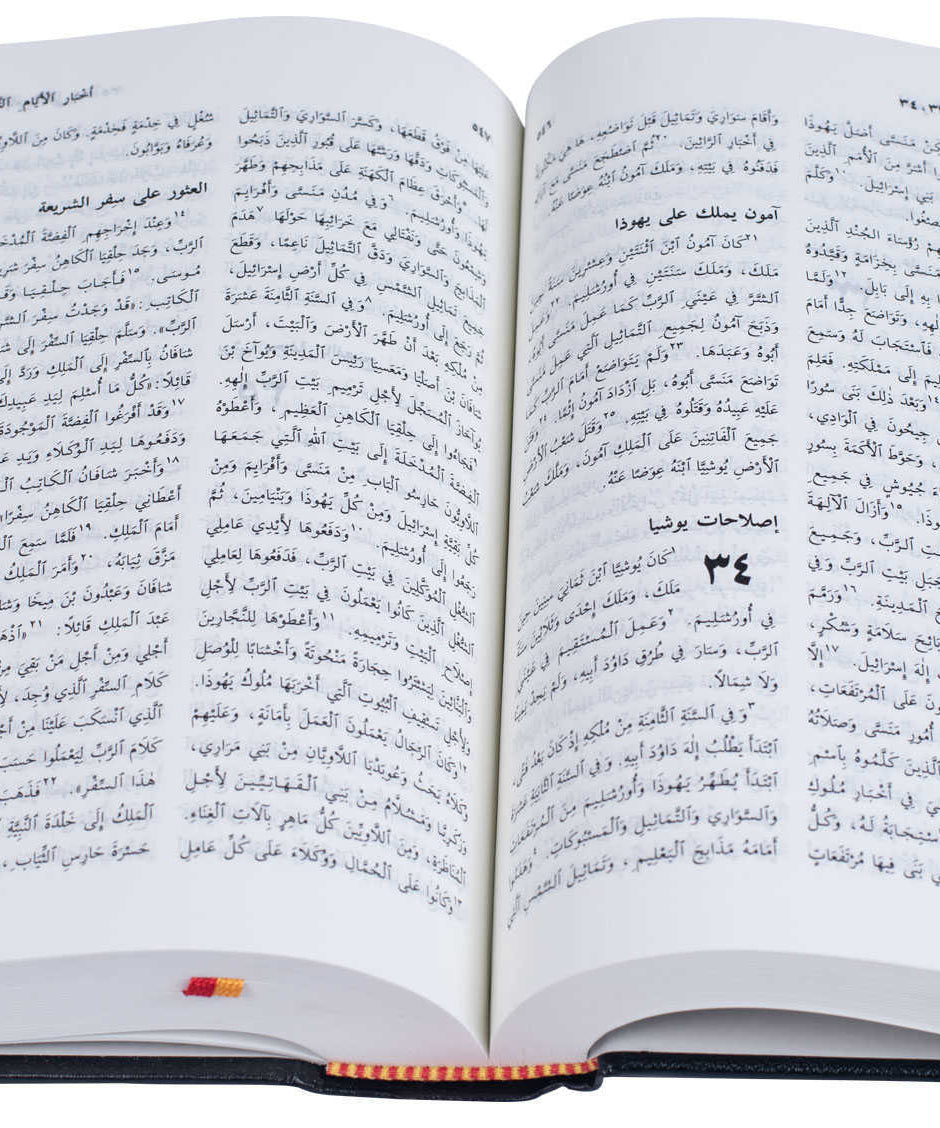 ٣٤
مَنَسَّى أَضَلَّ يَهُوذَا
أَشَرَّ مِنَ ٱلْأُمَمِ ٱلَّذِينَ
بَنِي إِسْرَائِيلَ. ١٠وَكَلَّمَ
رُؤَسَاءَ ٱلْجُنْدِ ٱلَّذِينَ
مَنَسَّى بِخِزَامَةٍ وَقَيَّدُوهُ
بِهِ إِلَى بَابِلَ. ١٢وَلَمَّا
وَتَوَاضَعَ جِدًّا أَمَامَ
فَٱسْتَجَابَ لَهُ وَسَمِعَ
إِلَى مَمْلَكَتِهِ. فَعَلِمَ
١٤وَبَعْدَ ذَلِكَ بَنَى سُورًا
جِيحُونَ فِي ٱلْوَادِي،
وَحَوَّطَ ٱلْأَكَمَةَ بِسُورٍ
جُيُوشٍ فِي جَمِيعِ
١٥وَأَزَالَ ٱلْآلِهَةَ
ٱلرَّبِّ، وَجَمِيعَ
جَبَلِ بَيْتِ ٱلرَّبِّ وَفِي
ٱلْمَدِينَةِ. ١٦وَرَمَّمَ
ذَبَائِحَ سَلَامَةٍ وَشُكْرٍ،
إِلَهَ إِسْرَائِيلَ. ١٧إِلَّا
عَلَى ٱلْمُرْتَفَعَاتِ،
أُمُورِ مَنَسَّى وَصَلَاتُهُ
ٱلَّذِينَ كَلَّمُوهُ بِٱسْمِ
فِي أَخْبَارِ مُلُوكِ
لَهُ، وَكُلُّ
بَنَى فِيهَا مُرْتَفَعَاتٍ
٥٤٦
وَأَقَامَ سَوَارِيَ وَتَمَاثِيلَ قَبْلَ تَوَاضُعِهِ، هَا هِيَ مَكْتُوبَةٌ
فِي أَخْبَارِ ٱلرَّائِينَ. ٢٠ثُمَّ ٱضْطَجَعَ مَنَسَّى مَعَ آبَائِهِ
فَدَفَنُوهُ فِي بَيْتِهِ، وَمَلَكَ آمُونُ ٱبْنُهُ عِوَضًا عَنْهُ.
آمون يملك على يهوذا
٢١كَانَ آمُونُ ٱبْنَ ٱثْنَتَيْنِ وَعِشْرِينَ سَنَةً حِينَ
مَلَكَ، وَمَلَكَ سَنَتَيْنِ فِي أُورُشَلِيمَ. ٢٢وَعَمِلَ
ٱلشَّرَّ فِي عَيْنَيِ ٱلرَّبِّ كَمَا عَمِلَ مَنَسَّى أَبُوهُ،
وَذَبَحَ آمُونُ لِجَمِيعِ ٱلتَّمَاثِيلِ ٱلَّتِي عَمِلَ مَنَسَّى
أَبُوهُ وَعَبَدَهَا. ٢٣وَلَمْ يَتَوَاضَعْ أَمَامَ ٱلرَّبِّ كَمَا
تَوَاضَعَ مَنَسَّى أَبُوهُ، بَلِ ٱزْدَادَ آمُونُ إِثْمًا. ٢٤وَفَتَنَ
عَلَيْهِ عَبِيدُهُ وَقَتَلُوهُ فِي بَيْتِهِ. ٢٥وَقَتَلَ شَعْبُ ٱلْأَرْضِ
جَمِيعَ ٱلْفَاتِنِينَ عَلَى ٱلْمَلِكِ آمُونَ، وَمَلَّكَ شَعْبُ
ٱلْأَرْضِ يُوشِيَّا ٱبْنَهُ عِوَضًا عَنْهُ
إصلاحات يوشيا
٣٤
١كَانَ يُوشِيَّا ٱبْنَ ثَمَانِيَ سِنِينَ حِينَ
مَلَكَ، وَمَلَكَ إِحْدَى وَثَلَاثِينَ سَنَةً
فِي أُورُشَلِيمَ. ٢وَعَمِلَ ٱلْمُسْتَقِيمَ فِي عَيْنَيِ
ٱلرَّبِّ، وَسَارَ فِي طُرُقِ دَاوُدَ أَبِيهِ، وَلَمْ يَحِدْ يَمِينًا
وَلَا شِمَالًا.
٣وَفِي ٱلسَّنَةِ ٱلثَّامِنَةِ مِنْ مُلْكِهِ إِذْ كَانَ بَعْدُ فَتًى،
ٱبْتَدَأَ يَطْلُبُ إِلَهَ دَاوُدَ أَبِيهِ. وَفِي ٱلسَّنَةِ ٱلثَّانِيَةَ عَشْرَةَ
ٱبْتَدَأَ يُطَهِّرُ يَهُوذَا وَأُورُشَلِيمَ مِنَ ٱلْمُرْتَفَعَاتِ
وَٱلسَّوَارِي وَٱلتَّمَاثِيلِ وَٱلْمَسْبُوكَاتِ. ٤وَهَدَمُوا
أَمَامَهُ مَذَابِحَ ٱلْبَعْلِيمِ، وَتَمَاثِيلَ ٱلشَّمْسِ ٱلَّتِي
٥٤٧
عَلَيْهَا مِنْ فَوْقُ قَطَعَهَا، وَكَسَّرَ ٱلسَّوَارِيَ وَٱلتَّمَاثِيلَ
وَٱلْمَسْبُوكَاتِ وَدَقَّهَا وَرَشَّهَا عَلَى قُبُورِ ٱلَّذِينَ ذَبَحُوا
لَهَا. ٥وَأَحْرَقَ عِظَامَ ٱلْكَهَنَةِ عَلَى مَذَابِحِهِمْ وَطَهَّرَ
يَهُوذَا وَأُورُشَلِيمَ. ٦وَفِي مُدُنِ مَنَسَّى وَأَفْرَايِمَ
وَشِمْعُونَ حَتَّى وَنَفْتَالِي مَعَ خَرَائِبِهَا حَوْلَهَا ٧هَدَمَ
ٱلْمَذَابِحَ وَٱلسَّوَارِيَ وَدَقَّ ٱلتَّمَاثِيلَ نَاعِمًا، وَقَطَعَ
جَمِيعَ تَمَاثِيلِ ٱلشَّمْسِ فِي كُلِّ أَرْضِ إِسْرَائِيلَ،
ثُمَّ رَجَعَ إِلَى أُورُشَلِيمَ. ٨وَفِي ٱلسَّنَةِ ٱلثَّامِنَةَ عَشْرَةَ
مِنْ مُلْكِهِ بَعْدَ أَنْ طَهَّرَ ٱلْأَرْضَ وَٱلْبَيْتَ، أَرْسَلَ
شَافَانَ بْنَ أَصَلْيَا وَمَعَسِيَّا رَئِيسَ ٱلْمَدِينَةِ وَيُوآخَ بْنَ
يُوآحَازَ ٱلْمُسَجِّلَ لِأَجْلِ تَرْمِيمِ بَيْتِ ٱلرَّبِّ إِلَهِهِ.
٩فَجَاءُوا إِلَى حِلْقِيَا ٱلْكَاهِنِ ٱلْعَظِيمِ، وَأَعْطَوْهُ
ٱلْفِضَّةَ ٱلْمُدْخَلَةَ إِلَى بَيْتِ ٱللهِ ٱلَّتِي جَمَعَهَا
ٱللَّاوِيُّونَ حَارِسُو ٱلْبَابِ مِنْ مَنَسَّى وَأَفْرَايِمَ وَمِنْ
كُلِّ بَقِيَّةِ إِسْرَائِيلَ وَمِنْ كُلِّ يَهُوذَا وَبَنْيَامِينَ، ثُمَّ
رَجَعُوا إِلَى أُورُشَلِيمَ. ١٠وَدَفَعُوهَا لِأَيْدِي عَامِلِي
ٱلشُّغْلِ ٱلْمُوَكَّلِينَ فِي بَيْتِ ٱلرَّبِّ، فَدَفَعُوهَا لِعَامِلِي
ٱلشُّغْلِ ٱلَّذِينَ كَانُوا يَعْمَلُونَ فِي بَيْتِ ٱلرَّبِّ لِأَجْلِ
إِصْلَاحِ ٱلْبَيْتِ وَتَرْمِيمِهِ. ١١وَأَعْطَوْهَا لِلنَّجَّارِينَ
وَٱلْبَنَّائِينَ لِيَشْتَرُوا حِجَارَةً مَنْحُوتَةً وَأَخْشَابًا لِلْوُصَلِ
وَلِأَجْلِ تَسْقِيفِ ٱلْبُيُوتِ ٱلَّتِي أَخْرَبَهَا مُلُوكُ يَهُوذَا.
١٢وَكَانَ ٱلرِّجَالُ يَعْمَلُونَ ٱلْعَمَلَ بِأَمَانَةٍ، وَعَلَيْهِمْ
وُكَلَاءُ يَحَثُ وَعُوبَدْيَا ٱللَّاوِيَّانِ مِنْ بَنِي مَرَارِي،
وَزَكَرِيَّا وَمَشُلَّامُ مِنْ بَنِي ٱلْقَهَاتِيِّينَ لِأَجْلِ
ٱلْمُنَاظَرَةِ، وَمِنَ ٱللَّاوِيِّينَ كُلُّ مَاهِرٍ بِآلَاتِ ٱلْغِنَاءِ.
١٣وَكَانُوا عَلَى ٱلْحُمَّالِ وَوُكَلَاءَ عَلَى كُلِّ عَامِلِ
أخبار الأيام
شُغْلٍ فِي خِدْمَةٍ فَخِدْمَةٍ. وَكَانَ مِنَ
وَعُرَفَاءُ وَبَوَّابُونَ.
العثور على سفر الشريعة
١٤وَعِنْدَ إِخْرَاجِهِمِ ٱلْفِضَّةَ
ٱلرَّبِّ، وَجَدَ حِلْقِيَا ٱلْكَاهِنُ سِفْرَ
مُوسَى. ١٥فَأَجَابَ حِلْقِيَا
ٱلْكَاتِبِ: «قَدْ وَجَدْتُ سِفْرَ
ٱلرَّبِّ». وَسَلَّمَ حِلْقِيَا ٱلسِّفْرَ إِلَى
شَافَانُ بِٱلسِّفْرِ إِلَى ٱلْمَلِكِ وَرَدَّ
قَائِلًا: «كُلُّ مَا أُسْلِمَ لِيَدِ عَبِيدِكَ
١٧وَقَدْ أَفْرَغُوا ٱلْفِضَّةَ ٱلْمَوْجُودَةَ
وَدَفَعُوهَا لِيَدِ ٱلْوُكَلَاءِ وَيَدِ
١٨وَأَخْبَرَ شَافَانُ ٱلْكَاتِبُ
أَعْطَانِي حِلْقِيَا ٱلْكَاهِنُ سِفْرًا»
أَمَامَ ٱلْمَلِكِ. ١٩فَلَمَّا سَمِعَ
مَزَّقَ ثِيَابَهُ، ٢٠وَأَمَرَ ٱلْمَلِكُ
شَافَانَ وَعَبْدُونَ بْنَ مِيخَا
عَبْدَ ٱلْمَلِكِ قَائِلًا: ٢١
أَجْلِي وَمِنْ أَجْلِ مَنْ بَقِيَ مِنْ
كَلَامِ ٱلسِّفْرِ ٱلَّذِي وُجِدَ،
ٱلَّذِي ٱنْسَكَبَ عَلَيْنَا مِنْ
كَلَامَ ٱلرَّبِّ لِيَعْمَلُوا حَسَبَ
هَذَا ٱلسِّفْرِ». ٢٢فَذَهَبَ
ٱلْمَلِكُ إِلَى خَلْدَةَ ٱلنَّبِيَّةِ
حَسْرَةَ حَارِسِ ٱلثِّيَابِ،